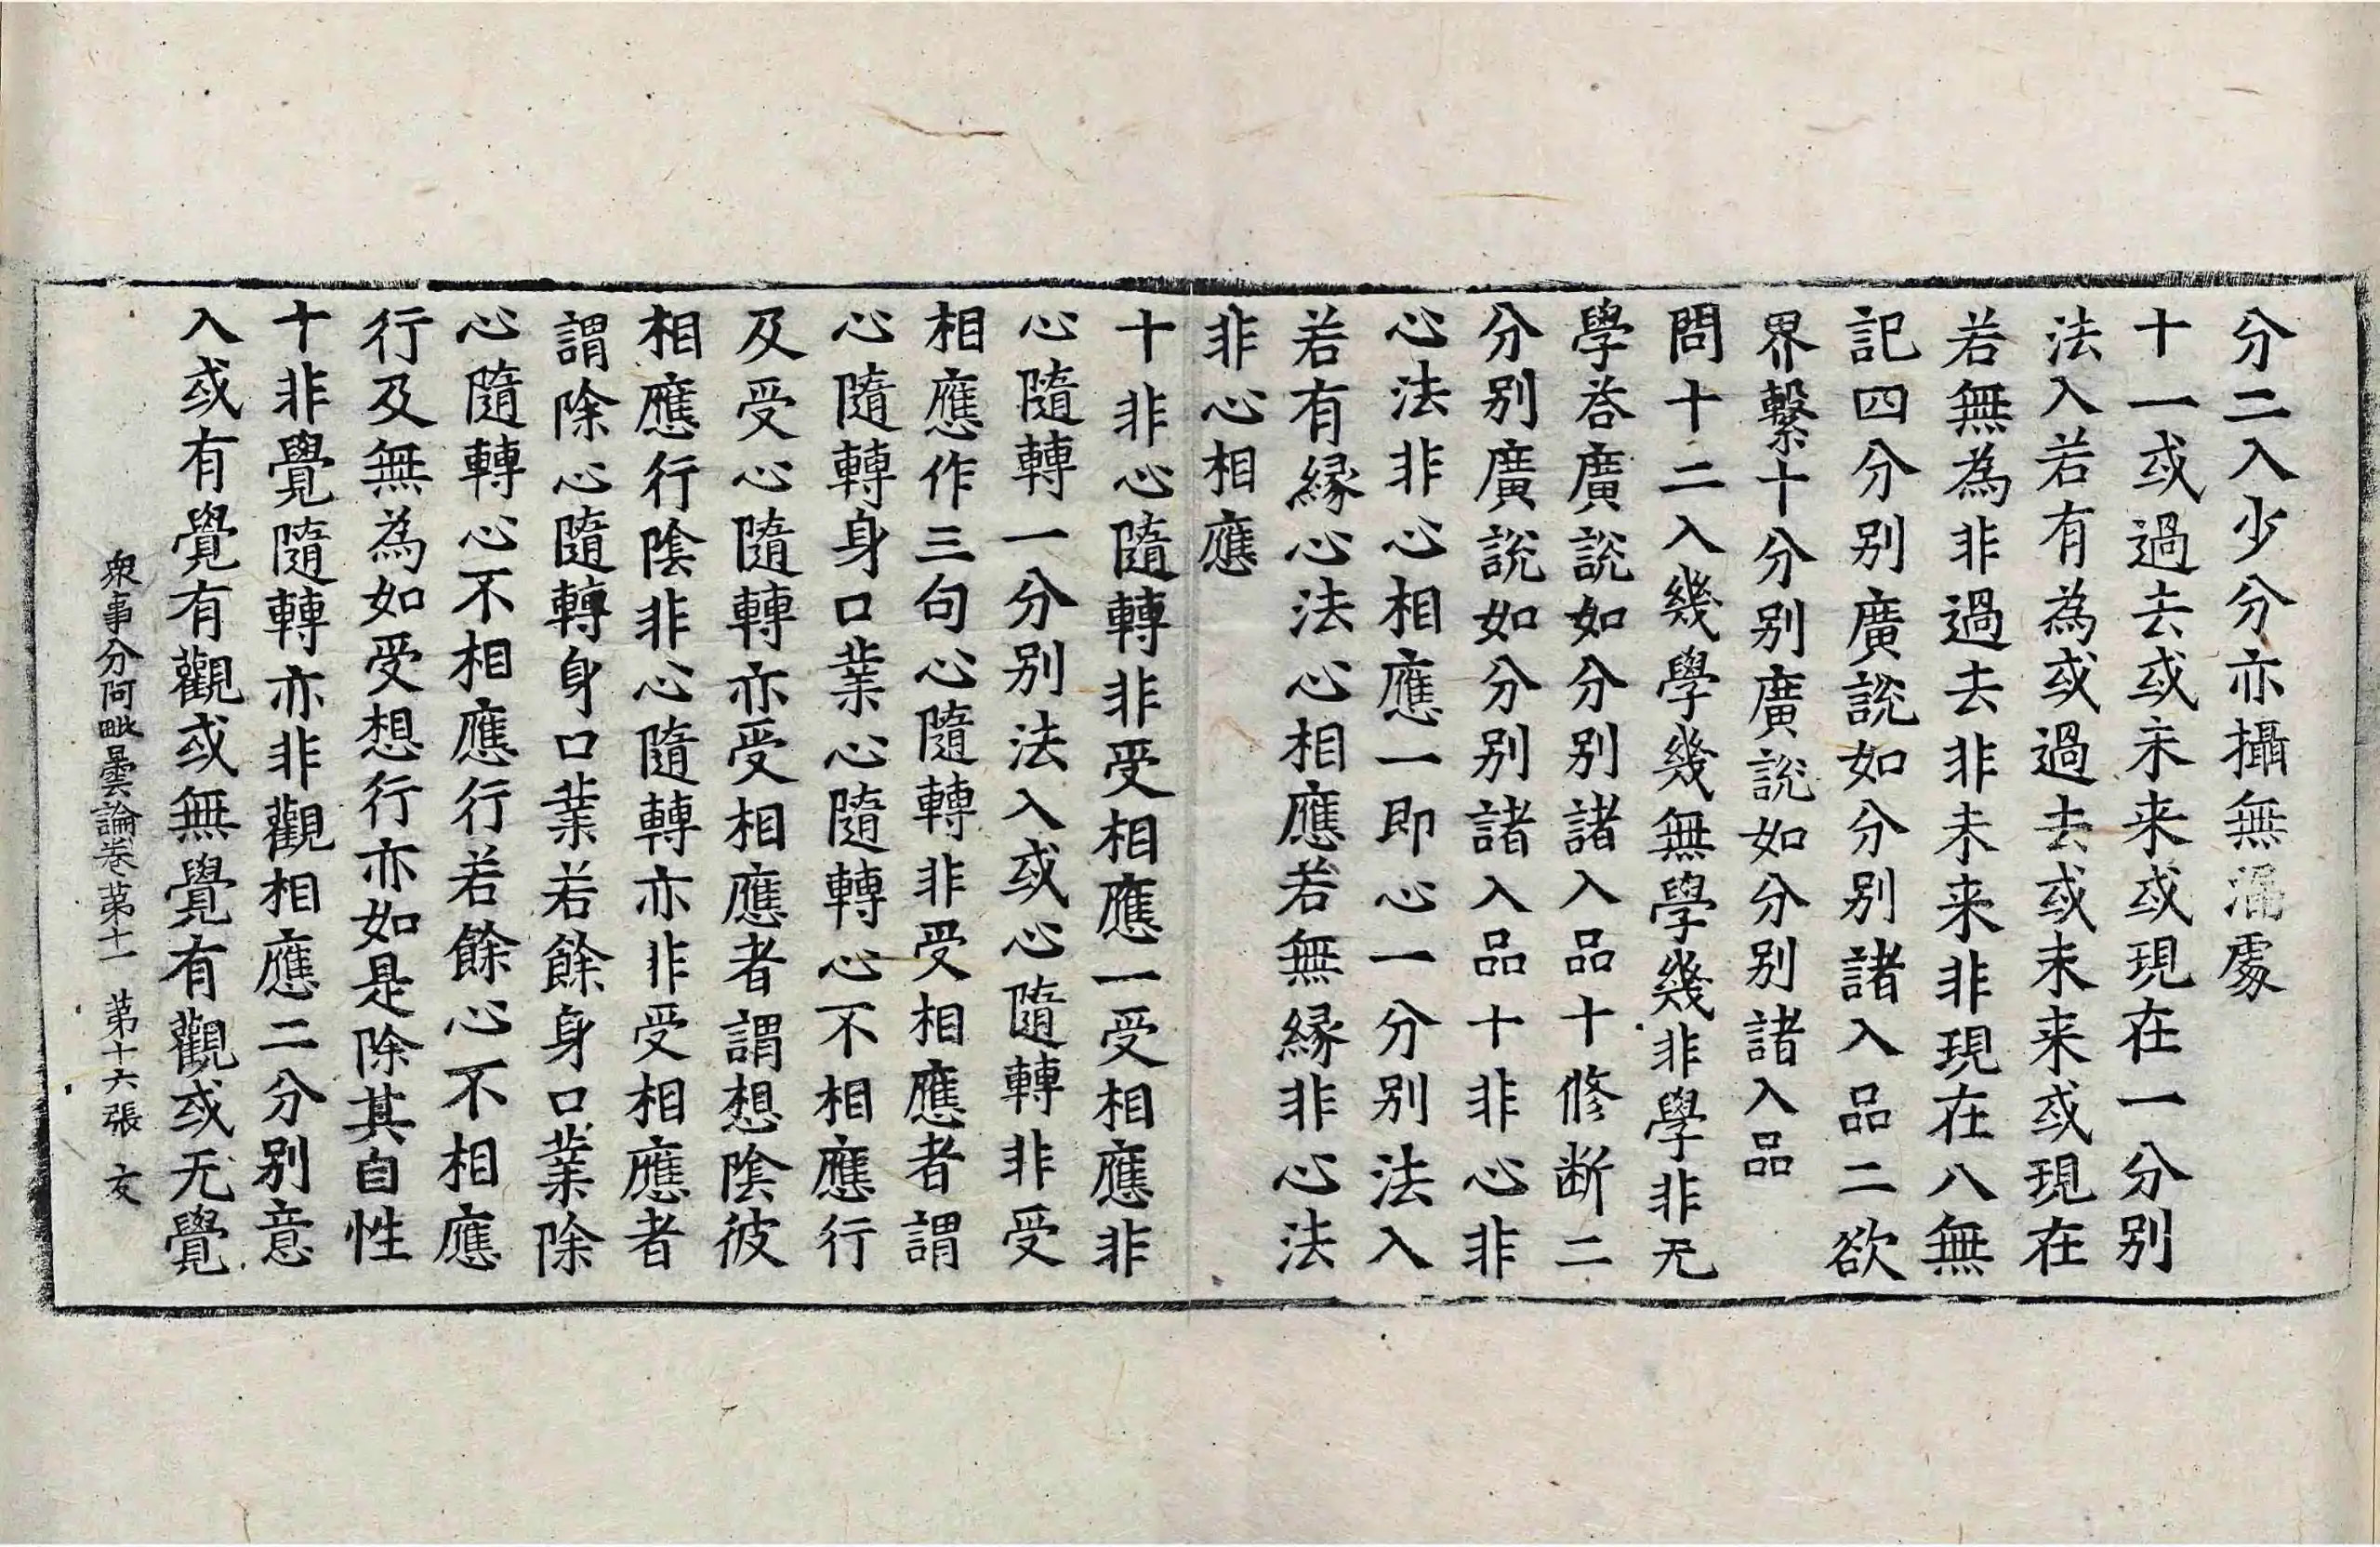 分二入少分亦攝無漏處
十一或過去或未来或現在一分別
法入若有為或過去或未来或現在
若無為非過去非未来非現在八無
記四分別廣說如分別諸入品二欲
界繫十分別廣說如分別諸入品
問十二入幾學幾無學幾非學非无
學荅廣說如分別諸入品十修断二
分別廣說如分別諸入品十非心非
心法非心相應一即心一分別法入
若有緣心法心相應若無緣非心法
非心相應
十非心隨轉非受相應一受相應非
心隨轉一分別法入或心隨轉非受
相應作三句心隨轉非受相應者謂
心隨轉身口業心隨轉心不相應行
及受心隨轉亦受相應者謂想陰彼
相應行陰非心隨轉亦非受相應者
謂除心隨轉身口業若餘身口業除
心隨轉心不相應行若餘心不相應
行及無為如受想行亦如是除其自性
十非覺隨轉亦非觀相應二分別意
入或有覺有觀或無覺有觀或无覺
衆事分阿毗曇論卷第十一 第十六張 友